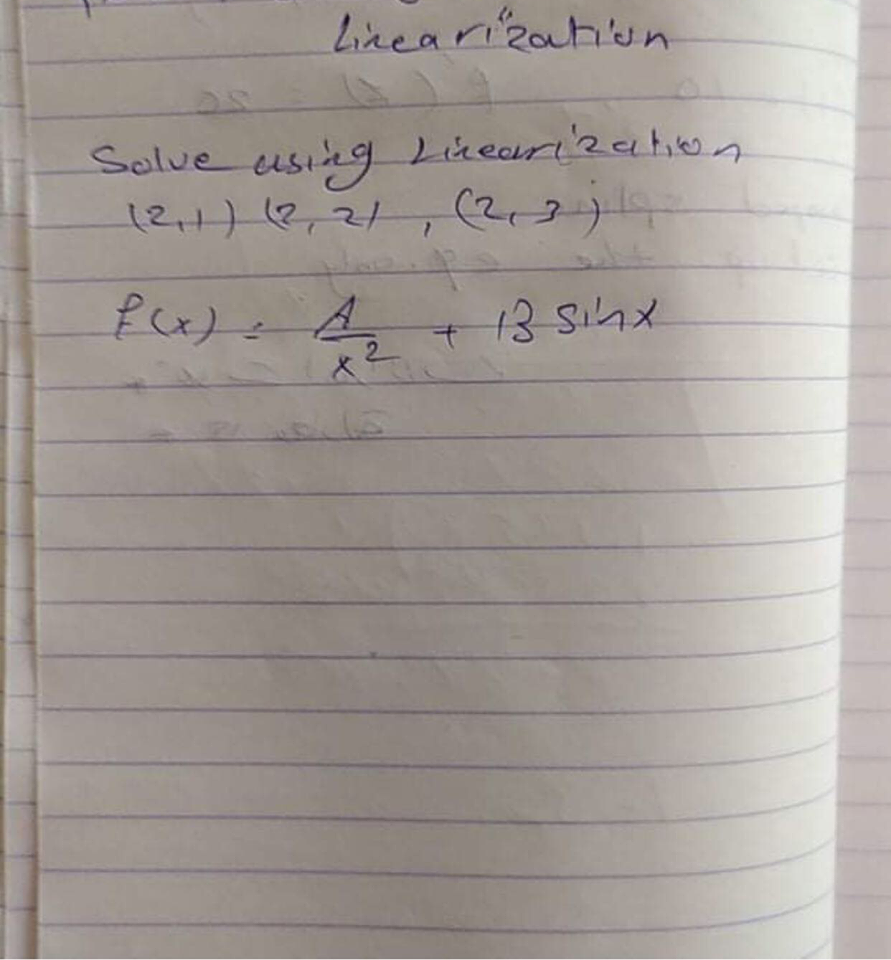 Linearization
Solve using Linearization
(2,1) (2,2), (2,3)
f(x) = A/x² + B sinx